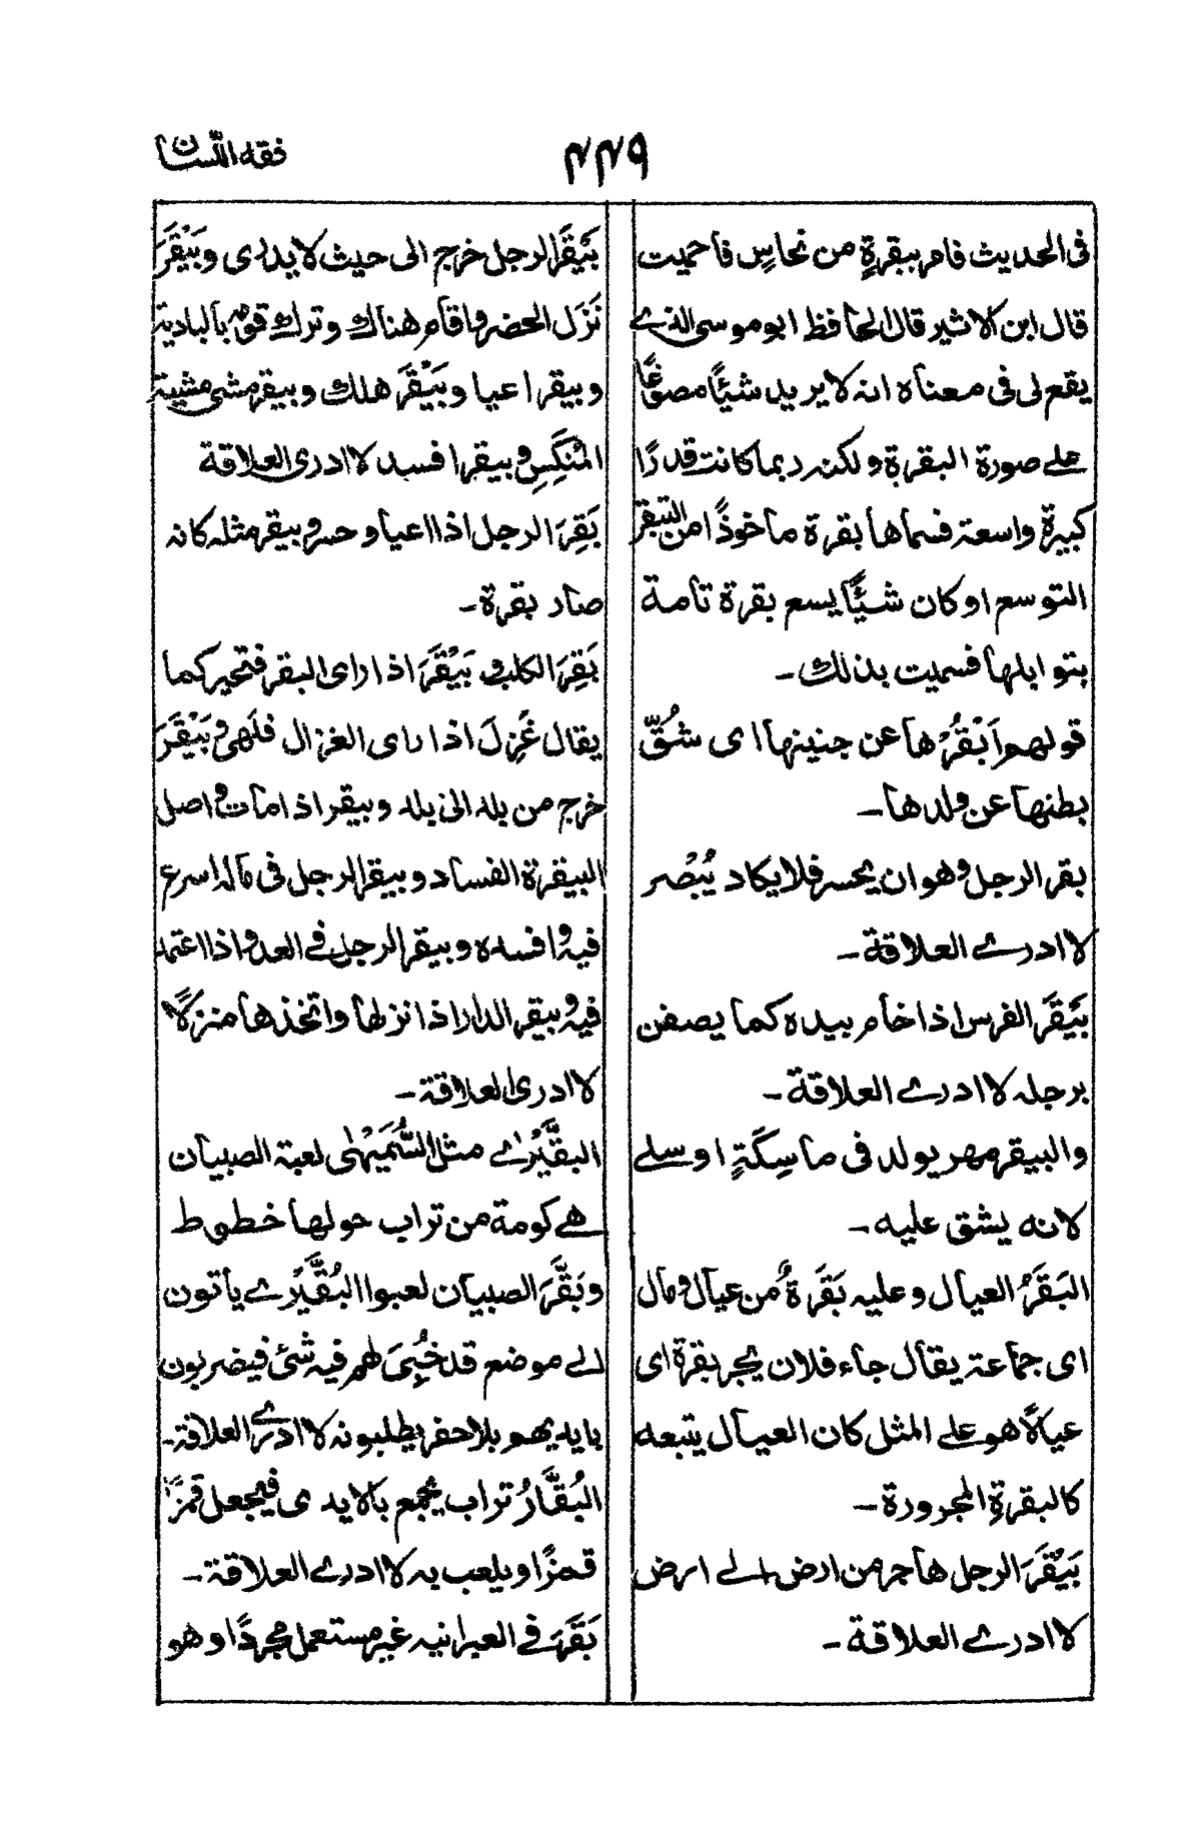 فقه اللسان
٤٤٩
فى الحديث فامر ببقرةٍ من نحاسٍ فاحميت
قال ابن الاثير قال الحافظ ابو موسى الذے
يقع لى فى معناه انه لا يريد شيئًا مصوغًا
علے صورة البقرة ولكنه ربما كانت قدرًا
كبيرةً واسعة فسماها بقرة ماخوذًا من التبقر
التوسع او كان شيئًا يسع بقرة تامة
بتوابلها فسميت بذلك۔
قولهم اَبْقُرْها عن جنينها اى شُقّ
بطنها عن ولدها۔
بقر الرجل وهو ان يحسر فلا يكاد يُبْصر
لا ادرے العلاقة۔
بَيْقَرَ الفرس اذا خام بيده كما يصفن
برجله لا ادرے العلاقة۔
والبيقر مهر يولد فى ماسِكَةٍ او سلے
لانه يشق عليه۔
البَقَرُ العيال وعليه بَقَرَةٌ من عيال ومال
اى جماعة يقال جاء فلان يجر بقرة اى
عيالًا هو على المثل كان العيال يتبعه
كالبقرةِ المجرورة۔
بَيْقَرَ الرجل هاجر من ارض الے ارض
لا ادرے العلاقة۔
بَيْقَرَ الرجل خرج الى حيث لا يدرى وبَيْقَرَ
نَزَل الحضر واقام هناك وترك قومه بالبادية
وبيقر اعيا وبَيْقَرَ هلك وبيقر مشى مشية
المُنَكِّسِ وبيقر افسد لا ادرى العلاقة
بَقِرَ الرجل اذا اعيا وحسر وبيقر مثله كانه
صار بقرة۔
بَقِرَ الكلب وبَيْقَرَ اذا راى البقر فتحير كما
يقال غَزِلَ اذا راى الغزال فلَهِىَ وبَيْقَرَ
خرج من بلد الى بلد وبيقر اذا مات واصل
البيقرة الفساد وبيقر الرجل فى ماله اسرع
فيه وافسده وبيقر الرجل فے العدو اذا اعتمد
فيه وبيقر الدار اذا نزلها واتخذها منزلًا
لا ادرى العلاقة۔
البقَّيْرٰے مثل السُّمَّيْهٰى لعبة الصبيان
هے كومة من تراب حولها خطوط
وبَقَّرَ الصبيان لعبوا البُقَّيْرے ياتون
الے موضع قد خُبِّىَ لهم فيه شئ فيضربون
بايديهم بلا حفر يطلبونه لا ادرے العلاقة۔
البُقَّارُ تراب يجمع بالايدى فيجعل قمزًا
قمزًا ويلعب به لا ادرے العلاقة۔
بَقَرَ فے العبرانيه غير مستعمل مجردًا وهو